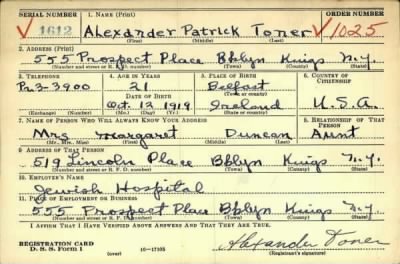 SERIAL NUMBER 1. NAME (Print) ORDER NUMBER
1612 Alexander Patrick Toner 1025
(First) (Middle) (Last)
2. ADDRESS (Print)
555 Prospect Place Bklyn Kings N.Y.
(Number and street or R. F. D. number) (Town) (County) (State)
3. TELEPHONE 4. AGE IN YEARS 5. PLACE OF BIRTH 6. COUNTRY OF CITIZENSHIP
Pr.3-3900 21 Belfast
DATE OF BIRTH (Town or county)
Oct. 13 1919 Ireland U.S.A.
(Exchange) (Number) (Mo.) (Day) (Yr.) (State or country)
7. NAME OF PERSON WHO WILL ALWAYS KNOW YOUR ADDRESS 8. RELATIONSHIP OF THAT PERSON
Mrs Margaret Duncan Aunt
(Mr., Mrs., Miss) (First) (Middle) (Last)
9. ADDRESS OF THAT PERSON
519 Lincoln Place Bklyn Kings N.Y.
(Number and street or R. F. D. number) (Town) (County) (State)
10. EMPLOYER'S NAME
Jewish Hospital
11. PLACE OF EMPLOYMENT OR BUSINESS
555 Prospect Place Bklyn Kings N.Y.
(Number and street or R. F. D. number) (Town) (County) (State)
I AFFIRM THAT I HAVE VERIFIED ABOVE ANSWERS AND THAT THEY ARE TRUE.
REGISTRATION CARD
D. S. S. FORM 1 (over) 16-17105 Alexander Toner
(Registrant's signature)